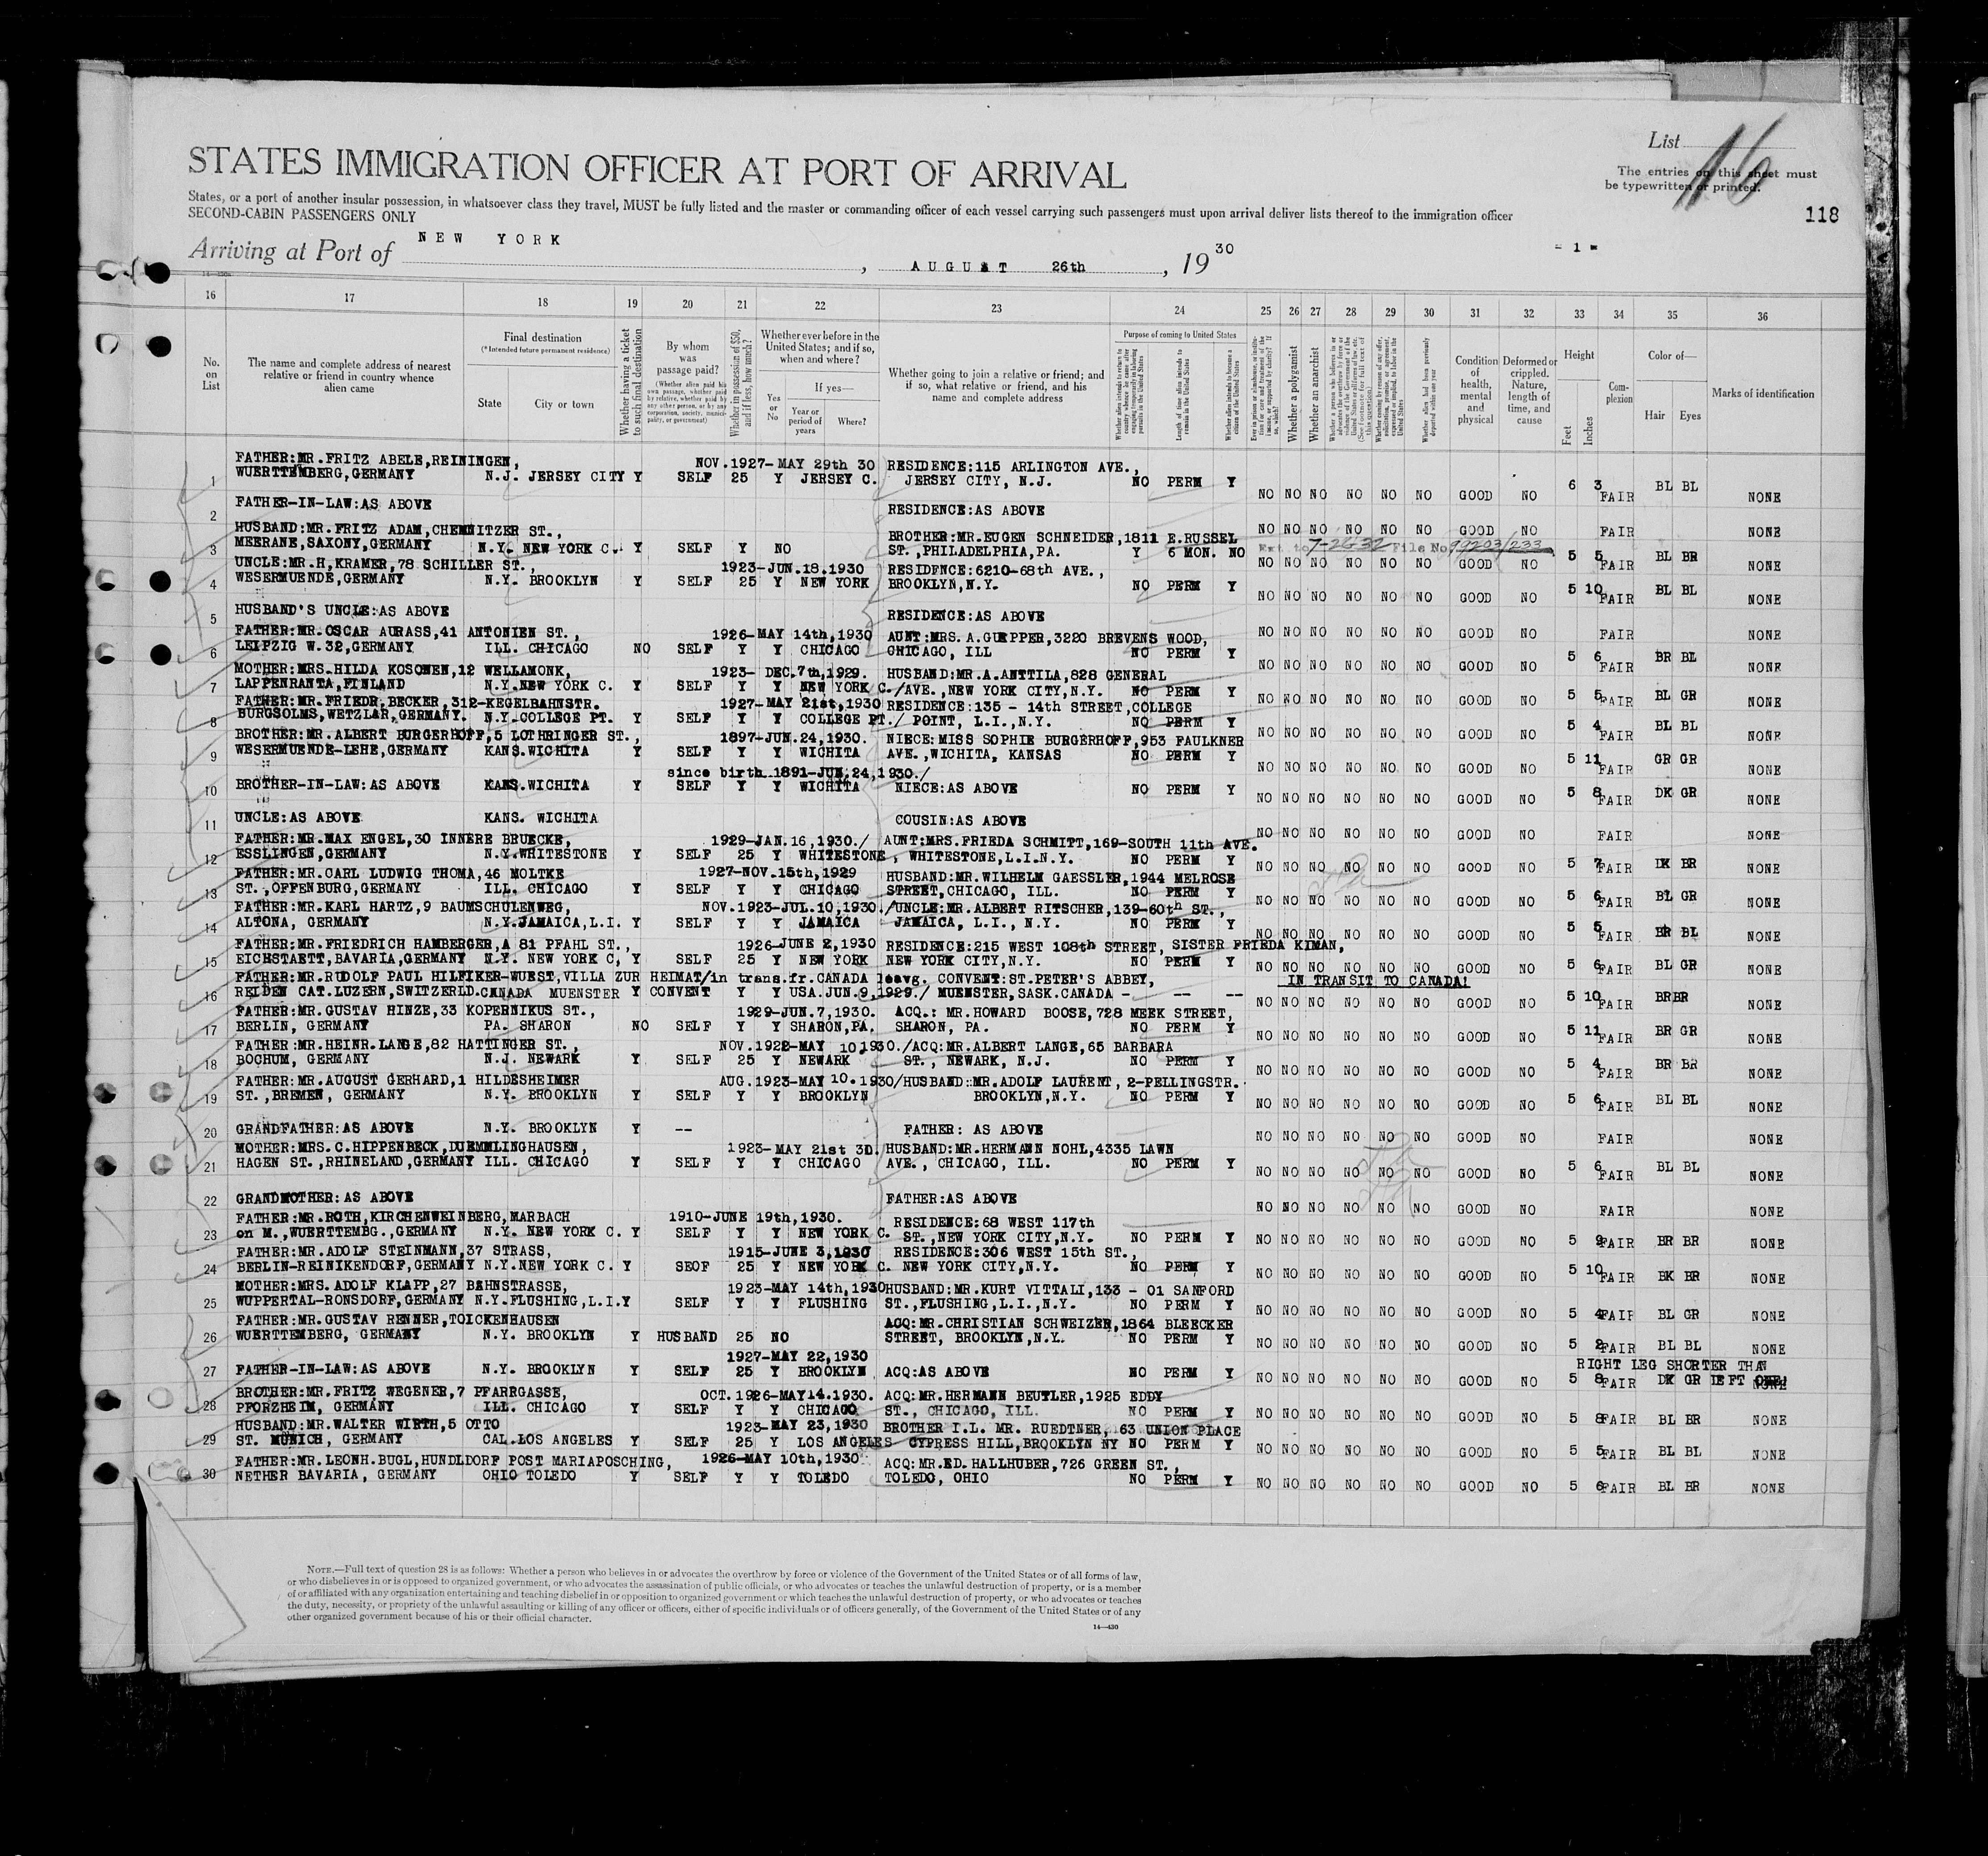 List 16
STATES IMMIGRATION OFFICER AT PORT OF ARRIVAL
The entries on this sheet must
be typewritten or printed.
States, or a port of another insular possession, in whatsoever class they travel, MUST be fully listed and the master or commanding officer of each vessel carrying such passengers must upon arrival deliver lists thereof to the immigration officer
SECOND-CABIN PASSENGERS ONLY
118
Arriving at Port of NEW YORK, AUGUST 26th, 1930
- 1 -
16 17 18 19 20 21 22 23 24 25 26 27 28 29 30 31 32 33 34 35 36
No. on List
The name and complete address of nearest relative or friend in country whence alien came
Final destination
(*Intended future permanent residence)
State
City or town
Whether having a ticket to such final destination
By whom was passage paid?
(Whether alien paid his own passage, whether paid by relative, whether paid by any other person, or by any corporation, society, municipality, or government)
Whether in possession of $50, and if less, how much?
Whether ever before in the United States; and if so, when and where?
Yes or No
If yes—
Year or period of years
Where?
Whether going to join a relative or friend; and if so, what relative or friend, and his name and complete address
Purpose of coming to United States
Length of time alien intends to remain in the United States
Whether alien intends to become a citizen of the United States
Whether a polygamist
Whether an anarchist
Condition of health, mental and physical
Deformed or crippled. Nature, length of time, and cause
Height
Feet
Inches
Complexion
Color of—
Hair
Eyes
Marks of identification
FATHER:MR.FRITZ ABELE,REININGEN, NOV.1927-MAY 29th 30 RESIDENCE:115 ARLINGTON AVE.,
1 WUERTTEMBERG,GERMANY N.J. JERSEY CITY Y SELF 25 Y JERSEY C. JERSEY CITY, N.J. NO PERM Y NO NO NO NO NO NO GOOD NO 6 3 FAIR BL BL NONE
2 FATHER-IN-LAW:AS ABOVE RESIDENCE:AS ABOVE NO NO NO NO NO NO GOOD NO FAIR NONE
HUSBAND:MR.FRITZ ADAM,CHEMNITZER ST., BROTHER:MR.EUGEN SCHNEIDER,1811 E.RUSSEL
3 MEERANE,SAXONY,GERMANY N.Y. NEW YORK C. Y SELF Y NO ST.,PHILADELPHIA,PA. Y 6 MON. NO Ext to 7-26-32 File No. 99203/233 NO NO NO NO NO NO GOOD NO 5 5 FAIR BL BR NONE
UNCLE:MR.H,KRAMER,78 SCHILLER ST., 1923-JUN.18.1930 RESIDENCE:6210-68th AVE.,
4 WESERMUENDE,GERMANY N.Y. BROOKLYN Y SELF 25 Y NEW YORK BROOKLYN,N.Y. NO PERM Y NO NO NO NO NO NO GOOD NO 5 10 FAIR BL BL NONE
5 HUSBAND'S UNCLE:AS ABOVE RESIDENCE:AS ABOVE NO NO NO NO NO NO GOOD NO FAIR NONE
FATHER:MR.OSCAR AURASS,41 ANTONIEN ST., 1926-MAY 14th,1930 AUNT:MRS.A.GUEPPER,3220 BREVENS WOOD,
6 LEIPZIG W.32,GERMANY ILL. CHICAGO NO SELF Y Y CHICAGO CHICAGO, ILL NO PERM Y NO NO NO NO NO NO GOOD NO 5 6 FAIR BR BL NONE
MOTHER:MRS.HILDA KOSONEN,12 WELLAMONK, 1923- DEC.7th,1929. HUSBAND:MR.A.ANTTILA,828 GENERAL
7 LAPPENRANTA,FINLAND N.Y.NEW YORK C. Y SELF Y Y NEW YORK C./AVE.,NEW YORK CITY,N.Y. NO PERM Y NO NO NO NO NO NO GOOD NO 5 5 FAIR BL GR NONE
FATHER:MR.FRIEDR.BECKER,312-KEGELBAHNSTR. 1927-MAY 21st,1930 RESIDENCE:135 - 14th STREET,COLLEGE
8 BURGSOLMS,WETZLAR,GERMANY. N.Y.COLLEGE PT. Y SELF Y Y COLLEGE PT./ POINT, L.I.,N.Y. NO PERM Y NO NO NO NO NO NO GOOD NO 5 4 FAIR BL BL NONE
BROTHER:MR.ALBERT BURGERHOFF,5 LOTHRINGER ST., 1897-JUN.24,1930. NIECE:MISS SOPHIE BURGERHOFF,953 FAULKNER
9 WESERMUENDE-LEHE,GERMANY KANS.WICHITA Y SELF Y Y WICHITA AVE.,WICHITA, KANSAS NO PERM Y NO NO NO NO NO NO GOOD NO 5 11 FAIR GR GR NONE
since birth 1891-JUN.24,1930./
10 BROTHER-IN-LAW:AS ABOVE KANS.WICHITA Y SELF Y Y WICHITA NIECE:AS ABOVE NO PERM Y NO NO NO NO NO NO GOOD NO 5 8 FAIR DK GR NONE
11 UNCLE:AS ABOVE KANS. WICHITA COUSIN:AS ABOVE NO NO NO NO NO NO GOOD NO FAIR NONE
FATHER:MR.MAX ENGEL,30 INNERE BRUECKE, 1929-JAN.16,1930./ AUNT:MRS.FRIEDA SCHMITT,169-SOUTH 11th AVE.
12 ESSLINGEN,GERMANY N.Y.WHITESTONE Y SELF 25 Y WHITESTONE, WHITESTONE,L.I.N.Y. NO PERM Y NO NO NO NO NO NO GOOD NO 5 7 FAIR DK BR NONE
FATHER:MR.CARL LUDWIG THOMA,46 MOLTKE 1927-NOV.15th,1929 HUSBAND:MR.WILHELM GAESSLER,1944 MELROSE
13 ST.,OFFENBURG,GERMANY ILL. CHICAGO Y SELF Y Y CHICAGO STREET,CHICAGO, ILL. NO PERM Y NO NO NO NO NO NO GOOD NO 5 6 FAIR BL GR NONE
FATHER:MR.KARL HARTZ,9 BAUMSCHULENWEG, NOV.1923-JUL.10,1930./UNCLE:MR.ALBERT RITSCHER,139-60th ST.,
14 ALTONA, GERMANY N.Y.JAMAICA,L.I. Y SELF Y Y JAMAICA JAMAICA, L.I., N.Y. NO PERM Y NO NO NO NO NO NO GOOD NO 5 5 FAIR BR BL NONE
FATHER:MR.FRIEDRICH HAMBERGER,A 81 PFAHL ST., 1926-JUNE 2,1930 RESIDENCE:215 WEST 108th STREET, SISTER FRIEDA KIMAN,
15 EICHSTAETT,BAVARIA,GERMANY N.Y. NEW YORK C, Y SELF 25 Y NEW YORK NEW YORK CITY,N.Y. NO PERM Y NO NO NO NO NO NO GOOD NO 5 6 FAIR BL GR NONE
FATHER:MR.RUDOLF PAUL HILFIKER-WUEST,VILLA ZUR HEIMAT/in trans.fr.CANADA leavg. CONVENT:ST.PETER'S ABBEY, IN TRANSIT TO CANADA!
16 REIDEN CAT.LUZERN,SWITZERLD. CANADA MUENSTER Y CONVENT Y Y USA.JUN.9,1929./ MUENSTER,SASK.CANADA - -- -- NO NO NO NO NO NO GOOD NO 5 10 FAIR BR BR NONE
FATHER:MR.GUSTAV HINZE,33 KOPERNIKUS ST., 1929-JUN.7,1930. ACQ.: MR.HOWARD BOOSE,728 MEEK STREET,
17 BERLIN, GERMANY PA. SHARON NO SELF Y Y SHARON,PA. SHARON, PA. NO PERM Y NO NO NO NO NO NO GOOD NO 5 11 FAIR BR GR NONE
FATHER:MR.HEINR.LANGE,82 HATTINGER ST., NOV.1922-MAY 10,1930./ACQ:MR.ALBERT LANGE,65 BARBARA
18 BOCHUM, GERMANY N.J. NEWARK Y SELF 25 Y NEWARK ST., NEWARK, N.J. NO PERM Y NO NO NO NO NO NO GOOD NO 5 4 FAIR BR BR NONE
FATHER:MR.AUGUST GERHARD,1 HILDESHEIMER AUG.1923-MAY 10.1930/HUSBAND:MR.ADOLF LAURENT, 2-PELLINGSTR.
19 ST.,BREMEN, GERMANY N.Y. BROOKLYN Y SELF Y Y BROOKLYN BROOKLYN,N.Y. NO PERM Y NO NO NO NO NO NO GOOD NO 5 6 FAIR BL BL NONE
20 GRANDFATHER:AS ABOVE N.Y. BROOKLYN Y -- FATHER: AS ABOVE NO NO NO NO NO NO GOOD NO FAIR NONE
MOTHER:MRS.C.HIPPENBECK,DUEMMLINGHAUSEN, 1923-MAY 21st 30. HUSBAND:MR.HERMANN NOHL,4335 LAWN
21 HAGEN ST.,RHINELAND,GERMANY ILL. CHICAGO Y SELF Y Y CHICAGO AVE., CHICAGO, ILL. NO PERM Y NO NO NO NO NO NO GOOD NO 5 6 FAIR BL BL NONE
22 GRANDMOTHER:AS ABOVE FATHER:AS ABOVE NO NO NO NO NO NO GOOD NO FAIR NONE
FATHER:MR.ROTH,KIRCHENWEINBERG,MARBACH 1910-JUNE 19th,1930. RESIDENCE:68 WEST 117th
23 on M.,WUERTTEMBG.,GERMANY N.Y. NEW YORK C. Y SELF Y Y NEW YORK C. ST.,NEW YORK CITY,N.Y. NO PERM Y NO NO NO NO NO NO GOOD NO 5 9 FAIR BR BR NONE
FATHER:MR.ADOLF STEINMANN,37 STRASS, 1915-JUNE 3,1930 RESIDENCE:306 WEST 15th ST.,
24 BERLIN-REINIKENDORF,GERMANY N.Y.NEW YORK C. Y SEOF 25 Y NEW YORK C. NEW YORK CITY,N.Y. NO PERM Y NO NO NO NO NO NO GOOD NO 5 10 FAIR BK BR NONE
MOTHER:MRS.ADOLF KLAPP,27 BAHNSTRASSE, 1923-MAY 14th,1930 HUSBAND:MR.KURT VITTALI,133 - 01 SANFORD
25 WUPPERTAL-RONSDORF,GERMANY N.Y.FLUSHING,L.I.Y SELF Y Y FLUSHING ST.,FLUSHING,L.I.,N.Y. NO PERM Y NO NO NO NO NO NO GOOD NO 5 4 FAIR BL GR NONE
FATHER:MR.GUSTAV RENNER,TOICKENHAUSEN ACQ:MR.CHRISTIAN SCHWEIZER,1864 BLEECKER
26 WUERTTEMBERG, GERMANY N.Y. BROOKLYN Y HUSBAND 25 NO STREET, BROOKLYN,N.Y. NO PERM Y NO NO NO NO NO NO GOOD NO 5 2 FAIR BL BL NONE
1927-MAY 22,1930 RIGHT LEG SHORTER THAN
27 FATHER-IN-LAW:AS ABOVE N.Y. BROOKLYN Y SELF 25 Y BROOKLYN ACQ:AS ABOVE NO PERM Y NO NO NO NO NO NO GOOD NO 5 8 FAIR DK GR LEFT ONE! NONE
BROTHER:MR.FRITZ WEGENER,7 PFARRGASSE, OCT.1926-MAY14.1930. ACQ:MR.HERMANN BEUTLER,1925 EDDY
28 PFORZHEIM, GERMANY ILL. CHICAGO Y SELF Y Y CHICAGO ST., CHICAGO, ILL. NO PERM Y NO NO NO NO NO NO GOOD NO 5 8 FAIR BL BR NONE
HUSBAND:MR.WALTER WIRTH,5 OTTO 1923-MAY 23,1930 BROTHER I.L. MR. RUEDTNER, 63 UNION PLACE
29 ST. MUNICH, GERMANY CAL.LOS ANGELES Y SELF 25 Y LOS ANGELES CYPRESS HILL,BROOKLYN NY NO PERM Y NO NO NO NO NO NO GOOD NO 5 5 FAIR BL BL NONE
FATHER:MR.LEONH.BUGL,HUNDLDORF POST MARIAPOSCHING, 1926-MAY 10th,1930 ACQ:MR.ED.HALLHUBER,726 GREEN ST.,
30 NETHER BAVARIA, GERMANY OHIO TOLEDO Y SELF Y Y TOLEDO TOLEDO, OHIO NO PERM Y NO NO NO NO NO NO GOOD NO 5 6 FAIR BL BR NONE
NOTE.—Full text of question 28 is as follows: Whether a person who believes in or advocates the overthrow by force or violence of the Government of the United States or of all forms of law,
or who disbelieves in or is opposed to organized government, or who advocates the assassination of public officials, or who advocates or teaches the unlawful destruction of property, or is a member
of or affiliated with any organization entertaining and teaching disbelief in or opposition to organized government or which teaches the unlawful destruction of property, or who advocates or teaches
the duty, necessity, or propriety of the unlawful assaulting or killing of any officer or officers, either of specific individuals or of officers generally, of the Government of the United States or of any
other organized government because of his or their official character.
14—430